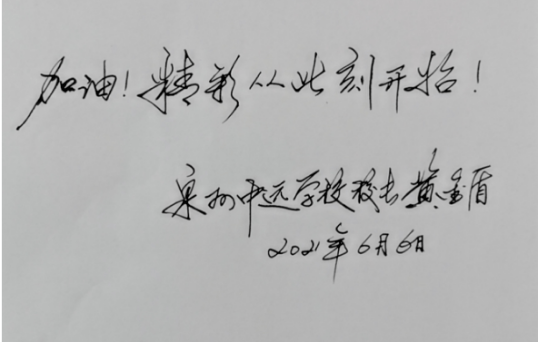 加油!精彩从此刻开始!
泉州中远学校校长黄金盾
2021年6月6日